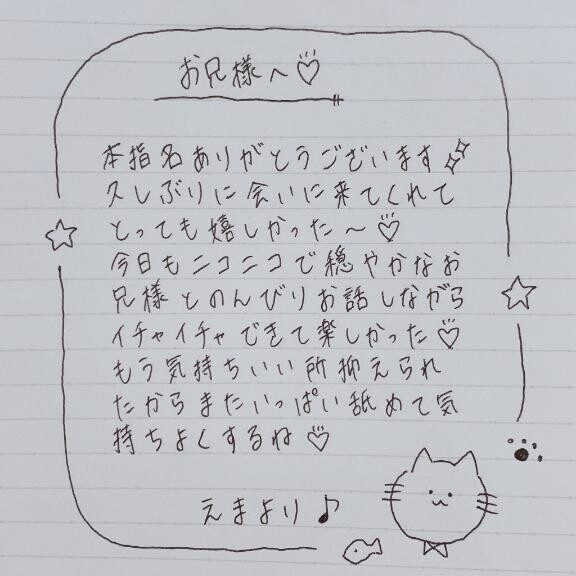 お兄様へ♡
本指名ありがとうございます✨
久しぶりに会いに来てくれて
とっても嬉しかった〜♡
今日もニコニコで穏やかなお
兄様とのんびりお話しながら
イチャイチャできて楽しかった♡
もう気持ちいい所抑えられ
たからまたいっぱい舐めて気
持ちよくするね♡
えまより♪